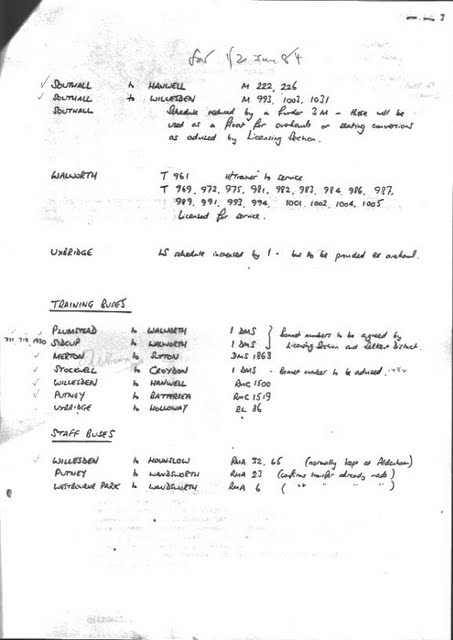 3
for 1/2 Jun 84
SOUTHALL to HANWELL M 222, 226
SOUTHALL to WILLESDEN M 993, 1003, 1031
SOUTHALL Schedule reduced by a further 3 M - these will be
used as a float for overhauls or seating conversions
as advised by Licensing Section.
WALWORTH T 961 trainer to service
T 969, 972, 975, 981, 982, 983, 984, 986, 987,
989, 991, 993, 994, 1001, 1002, 1004, 1005
Licensed for service.
UXBRIDGE LS schedule increased by 1 - bus to be provided ex overhaul.
TRAINING BUSES
PLUMSTEAD to WALWORTH 1 DMS } Bonnet numbers to be agreed by
SIDCUP to WALWORTH 1 DMS } Licensing Section and Selkent District.
MERTON to SUTTON DMS 1868
STOCKWELL to CROYDON 1 DMS - Bonnet number to be advised.
WILLESDEN to HANWELL RMC 1500
PUTNEY to BATTERSEA RMC 1519
UXBRIDGE to HOLLOWAY RL 86
STAFF BUSES
WILLESDEN to HOUNSLOW RMA 32, 65 (normally kept at Aldenham)
PUTNEY to WANDSWORTH RMA 23 (confirms transfer already made)
WESTBOURNE PARK to WANDSWORTH RMA 6 ( " " " " )